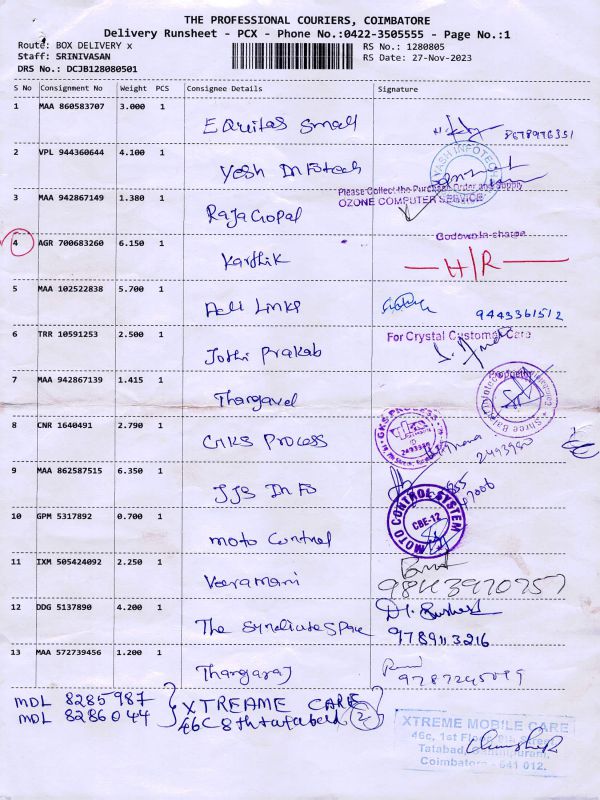 THE PROFESSIONAL COURIERS, COIMBATORE
Delivery Runsheet - PCX - Phone No.:0422-3505555 - Page No.:1
Route: BOX DELIVERY x
RS No.: 1280805
Staff: SRINIVASAN
RS Date: 27-Nov-2023
DRS No.: DCJB128080501
S No Consignment No Weight PCS Consignee Details Signature
1 MAA 860583707 3.000 1 Equitas Small
2 VPL 944360644 4.100 1 Yesh Infotech
YASH INFOTECH
Please Collect the Purchase Order and supply
3 MAA 942867149 1.380 1 RajaGopal OZONE COMPUTER SERVICE
Godown In-charge
4 AGR 700683260 6.150 1 Karthik H/R
5 MAA 102522838 5.700 1 Links 9443361512
For Crystal Customer Care
6 TRR 10591253 2.500 1 Jothi Prakab
Proprietor
7 MAA 942867139 1.415 1 Thangavel
8 CNR 1640491 2.790 1 GKS Process
GKS PROCESS
2493980
9 MAA 862587515 6.350 1 JJS Info
10 GPM 5317892 0.700 1 Moto Control
MOTO CONTROL SYSTEM
CBE-12
11 IXM 505424092 2.250 1 Veeramani
12 DDG 5137890 4.200 1 The Syndicate Space
9789113216
13 MAA 572739456 1.200 1 Thangaraj
MDL 8285987
MDL 8286044
XTREAME CARE
46C 8th 2
XTREME MOBILE CARE
46c, 1st Floor, 8th Street
Tatabad,
Coimbatore - 641 012.